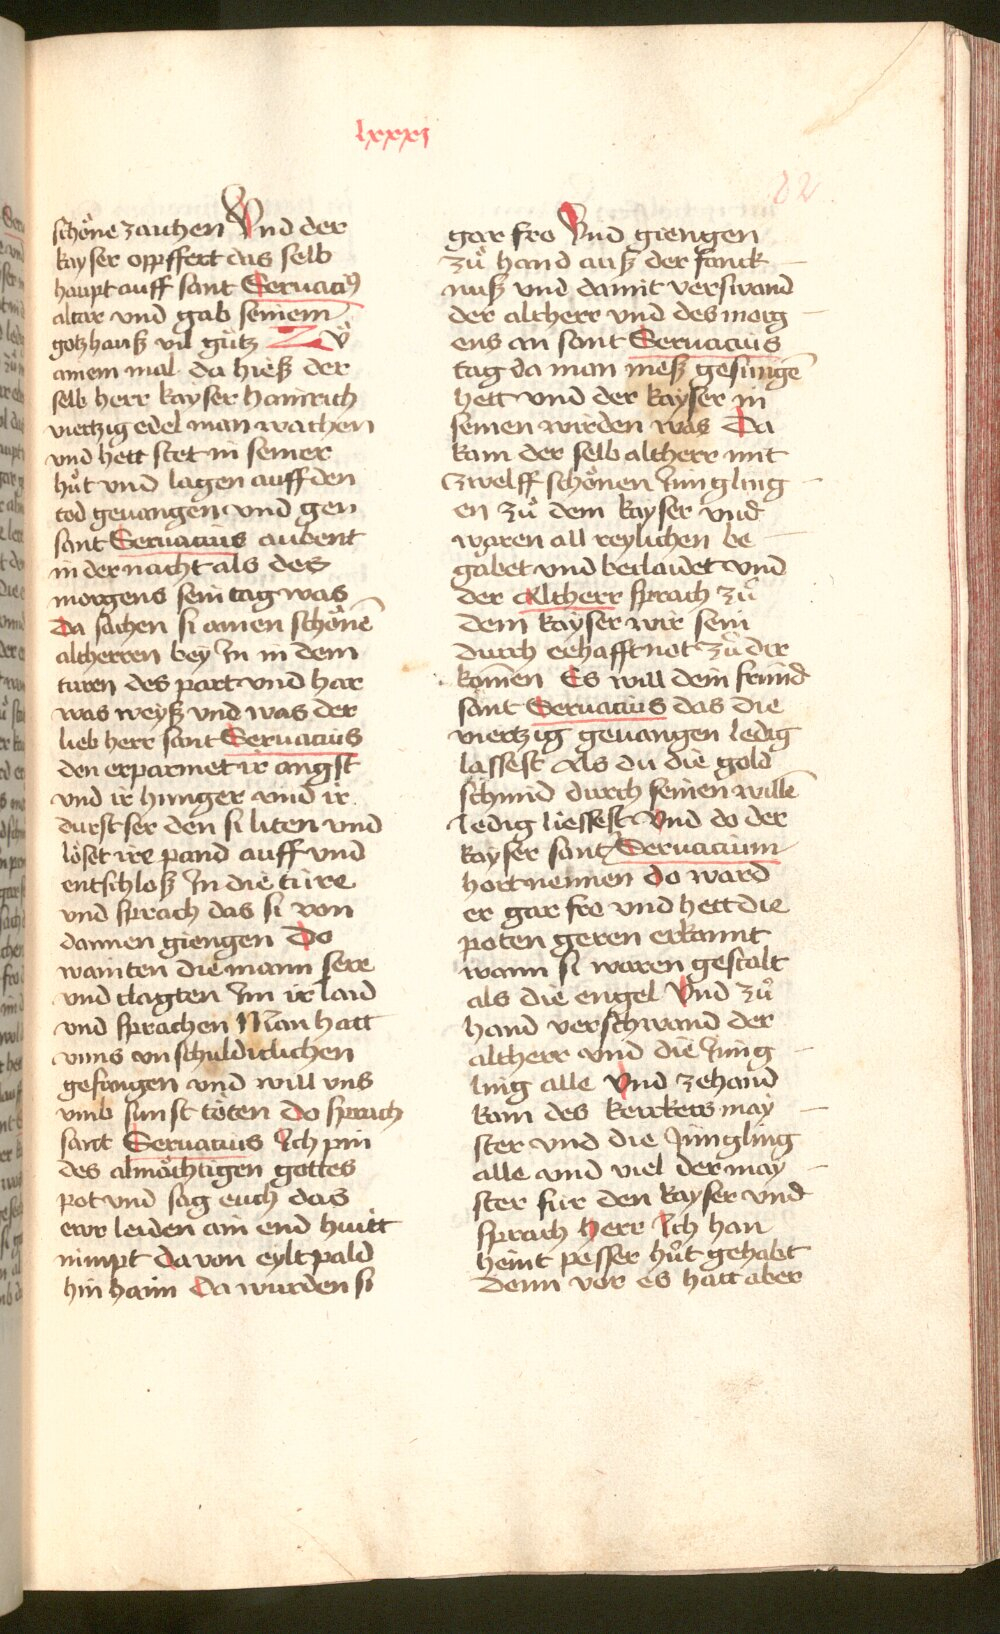 lxxxj
82
schöne zaichen Vnd der
kayser oppffert das selb
haupt auff sant Seruaciꝰ
altar vnd gab seinem
gotzhauß vil gůtz Zů
ainem mal da hieß der
selb herr kayser hainrich
viertzig edel man vachen
vnd hett stet in seiner
hůt vnd lagen auff den
tod geuangen vnd gen
sant Seruacius aubent
in der nacht als des
morgens sein tag was
Da sachen si ainen schönē
altherren bey In in dem
turen des part vnd har
was weyß vnd was der
lieb herr sant Seruacius
den erparmet ir angst
vnd ir hunger vnd ir
durst ser den si liten vnd
löset ire pand auff vnd
entschloß In die türe
vnd sprach das si von
dannen giengen Do
wainten die mann sere
vnd clagten Im ir laid
vnd sprachen Man hatt
vnns vnschuldiclichen
gefangen vnd will vns
vmb sunst töten do sprach
sant Seruacius Ich pin
des almächtigen gottes
pot vnd sag euch das
ewr leiden ain end huitt
nimpt da von eylt pald
hin haim Da wurden si
gar fro Vnd giengen
zů hand auß der fanck
nuß vnd damit verswand
der altherr vnd des morg
ens an sant Seruacius
tag da man meß gesungē
hett vnd der kayser in
seinen wirden was Da
kam der selb altherr mit
zwelff schönen Jüngling
en zů dem kayser vnd
waren all reylichen be
gabet vnd beclaidet vnd
der Altherr sprach zů
dem kayser wir sein
durch eehafft not zů dir
komen Es will dein fründ
sant Seruacius das die
viertzig geuangen ledig
lassest Als du die gold
schmid durch seinen willē
ledig liessest Vnd do der
kayser sant Seruacium
hort nennen do ward
er gar fro vnd hett die
poten geren erkannt
wann si waren gestalt
als die engel Vnd zů
hand verschwand der
altherr vnd die Jüng
ling alle Vnd zehand
kam des kerckers may
ster vnd die Jüngling
alle vnd viel der may
ster für den kayser vnd
sprach herr Ich han
heint pesser hůt gehabt
denn vor es hatt aber